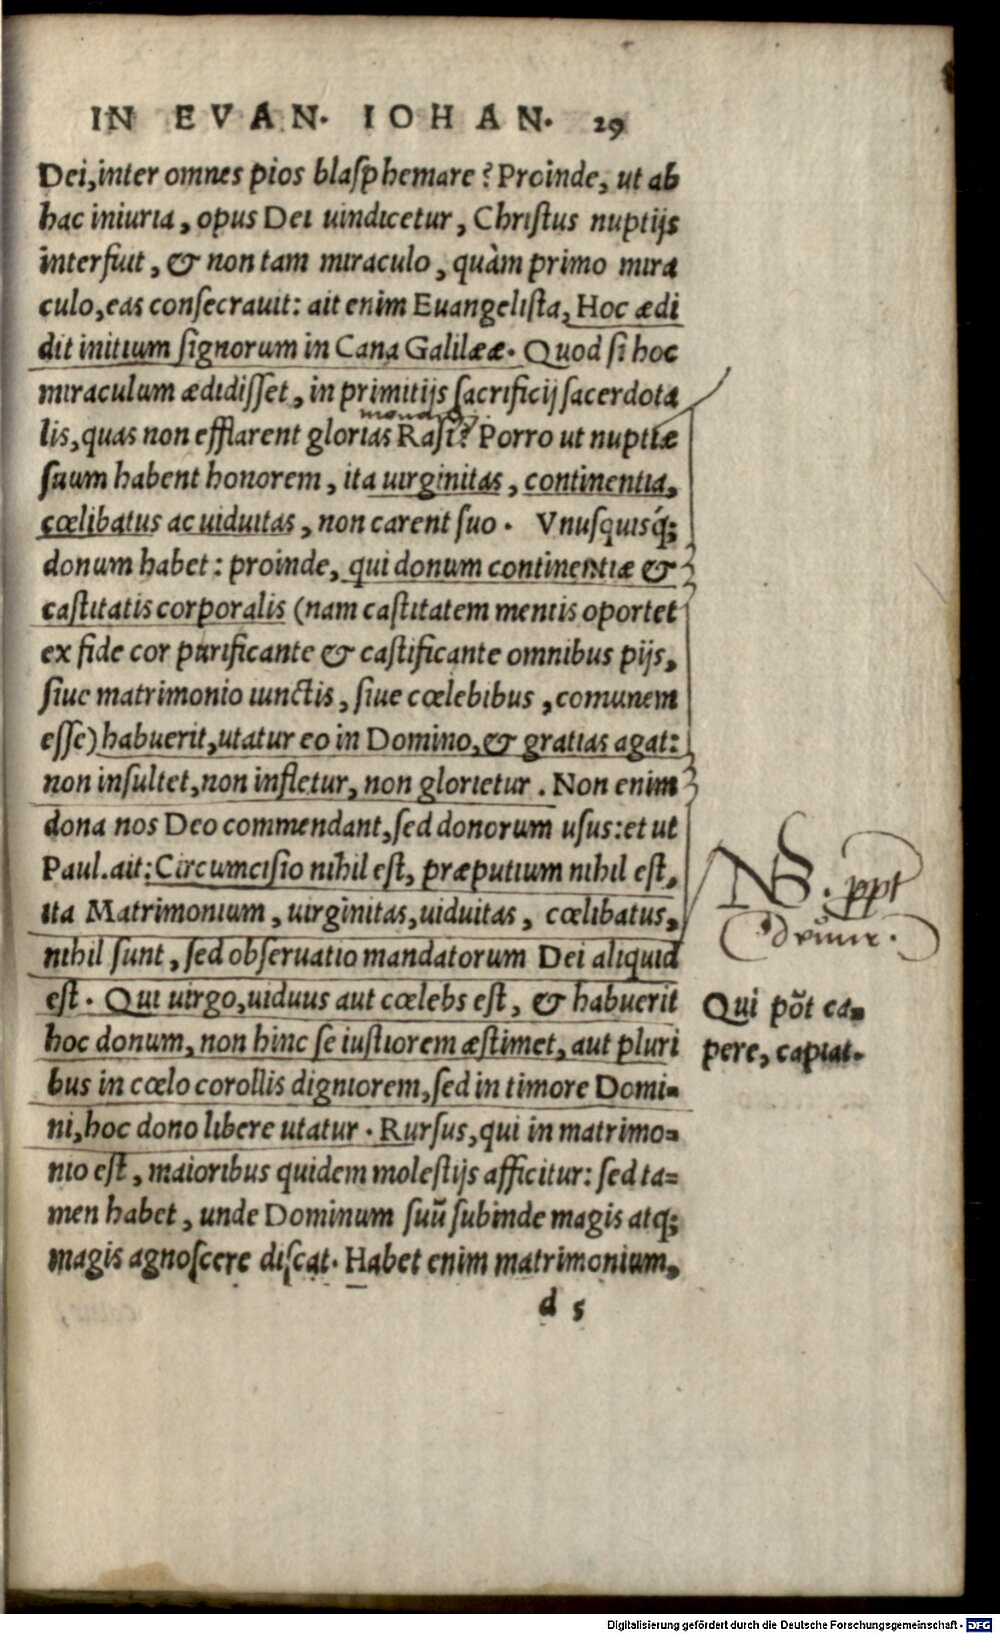 IN EVAN. IOHAN. 29
Dei, inter omnes pios blasphemare? Proinde, ut ab
hac iniuria, opus Dei uindicetur, Christus nuptijs
interfuit, & non tam miraculo, quàm primo mira
culo, eas consecrauit: ait enim Euangelista, Hoc ædi
dit initium signorum in Cana Galilææ. Quod si hoc
miraculum ædidisset, in primitijs sacrificij sacerdota
lis, quas non efflarent glorias Rasi? Porro ut nuptiæ
suum habent honorem, ita uirginitas, continentia,
cœlibatus ac uiduitas, non carent suo. Vnusquisq́;
donum habet: proinde, qui donum continentiæ &
castitatis corporalis (nam castitatem mentis oportet
ex fide cor purificante & castificante omnibus pijs,
siue matrimonio iunctis, siue cœlebibus, comunem
esse) habuerit, utatur eo in Domino, & gratias agat:
non insultet, non infletur, non glorietur. Non enim
dona nos Deo commendant, sed donorum usus: et ut
Paul. ait: Circumcisio nihil est, præputium nihil est,
ita Matrimonium, uirginitas, uiduitas, cœlibatus,
nihil sunt, sed obseruatio mandatorum Dei aliquid
est. Qui uirgo, uiduus aut cœlebs est, & habuerit
hoc donum, non hinc se iustiorem æstimet, aut pluri
bus in cœlo corollis digniorem, sed in timore Domi-
ni, hoc dono libere utatur. Rursus, qui in matrimo-
nio est, maioribus quidem molestijs afficitur: sed ta-
men habet, unde Dominum suũ subinde magis atq;
magis agnoscere discat. Habet enim matrimonium,
d 5
Qui põt ca-
pere, capiat.
Digitalisierung gefördert durch die Deutsche Forschungsgemeinschaft - DFG